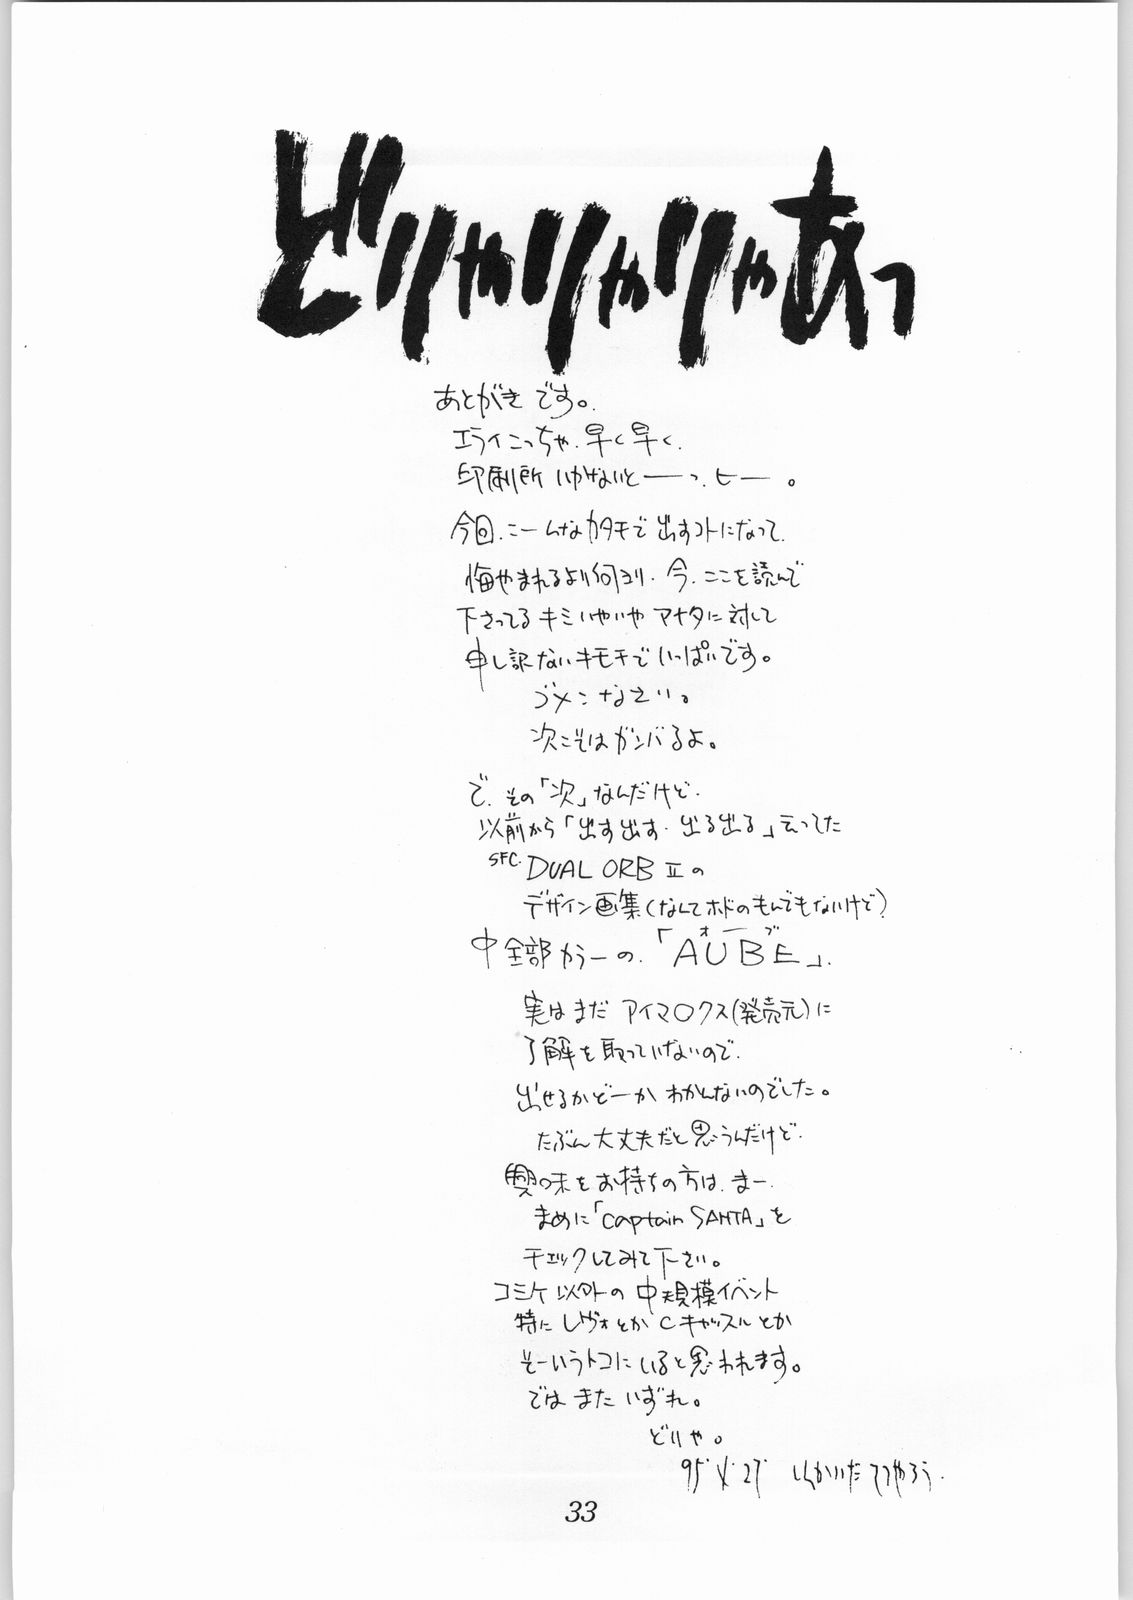 どりゃりゃりゃあっ
あとがきです。
エライこっちゃ、早く早く、
印刷所いかないとーーっ、ヒー。
今回、こーんなカタチで出すコトになって、
悔やまれるより何より、今、ここを読んで
下さってるキミいやいやアナタに対して
申し訳ないキモチでいっぱいです。
ゴメンなさい。
次こそはガンバるよ。
で、その「次」なんだけど、
以前から「出す出す、出る出る」云ってた
SFC. DUAL ORB Ⅱの
デザイン画集(なんてホドのもんでもないけど)
中全部カラーの、「AUBE」、
オーブ
実はまだアイマ○クス(発売元)に
了解を取っていないので、
出せるかどーかわかんないのでした。
たぶん大丈夫だと思うんだけど、
興味をお持ちの方は、まー、
まめに「captain SANTA」を
チェックしてみて下さい。
コミケ以外の中規模イベント
特にレヴォとかCキャッスルとか
そーいうトコにいると思われます。
ではまたいずれ。
どりゃ。
95' 4' 27'
33